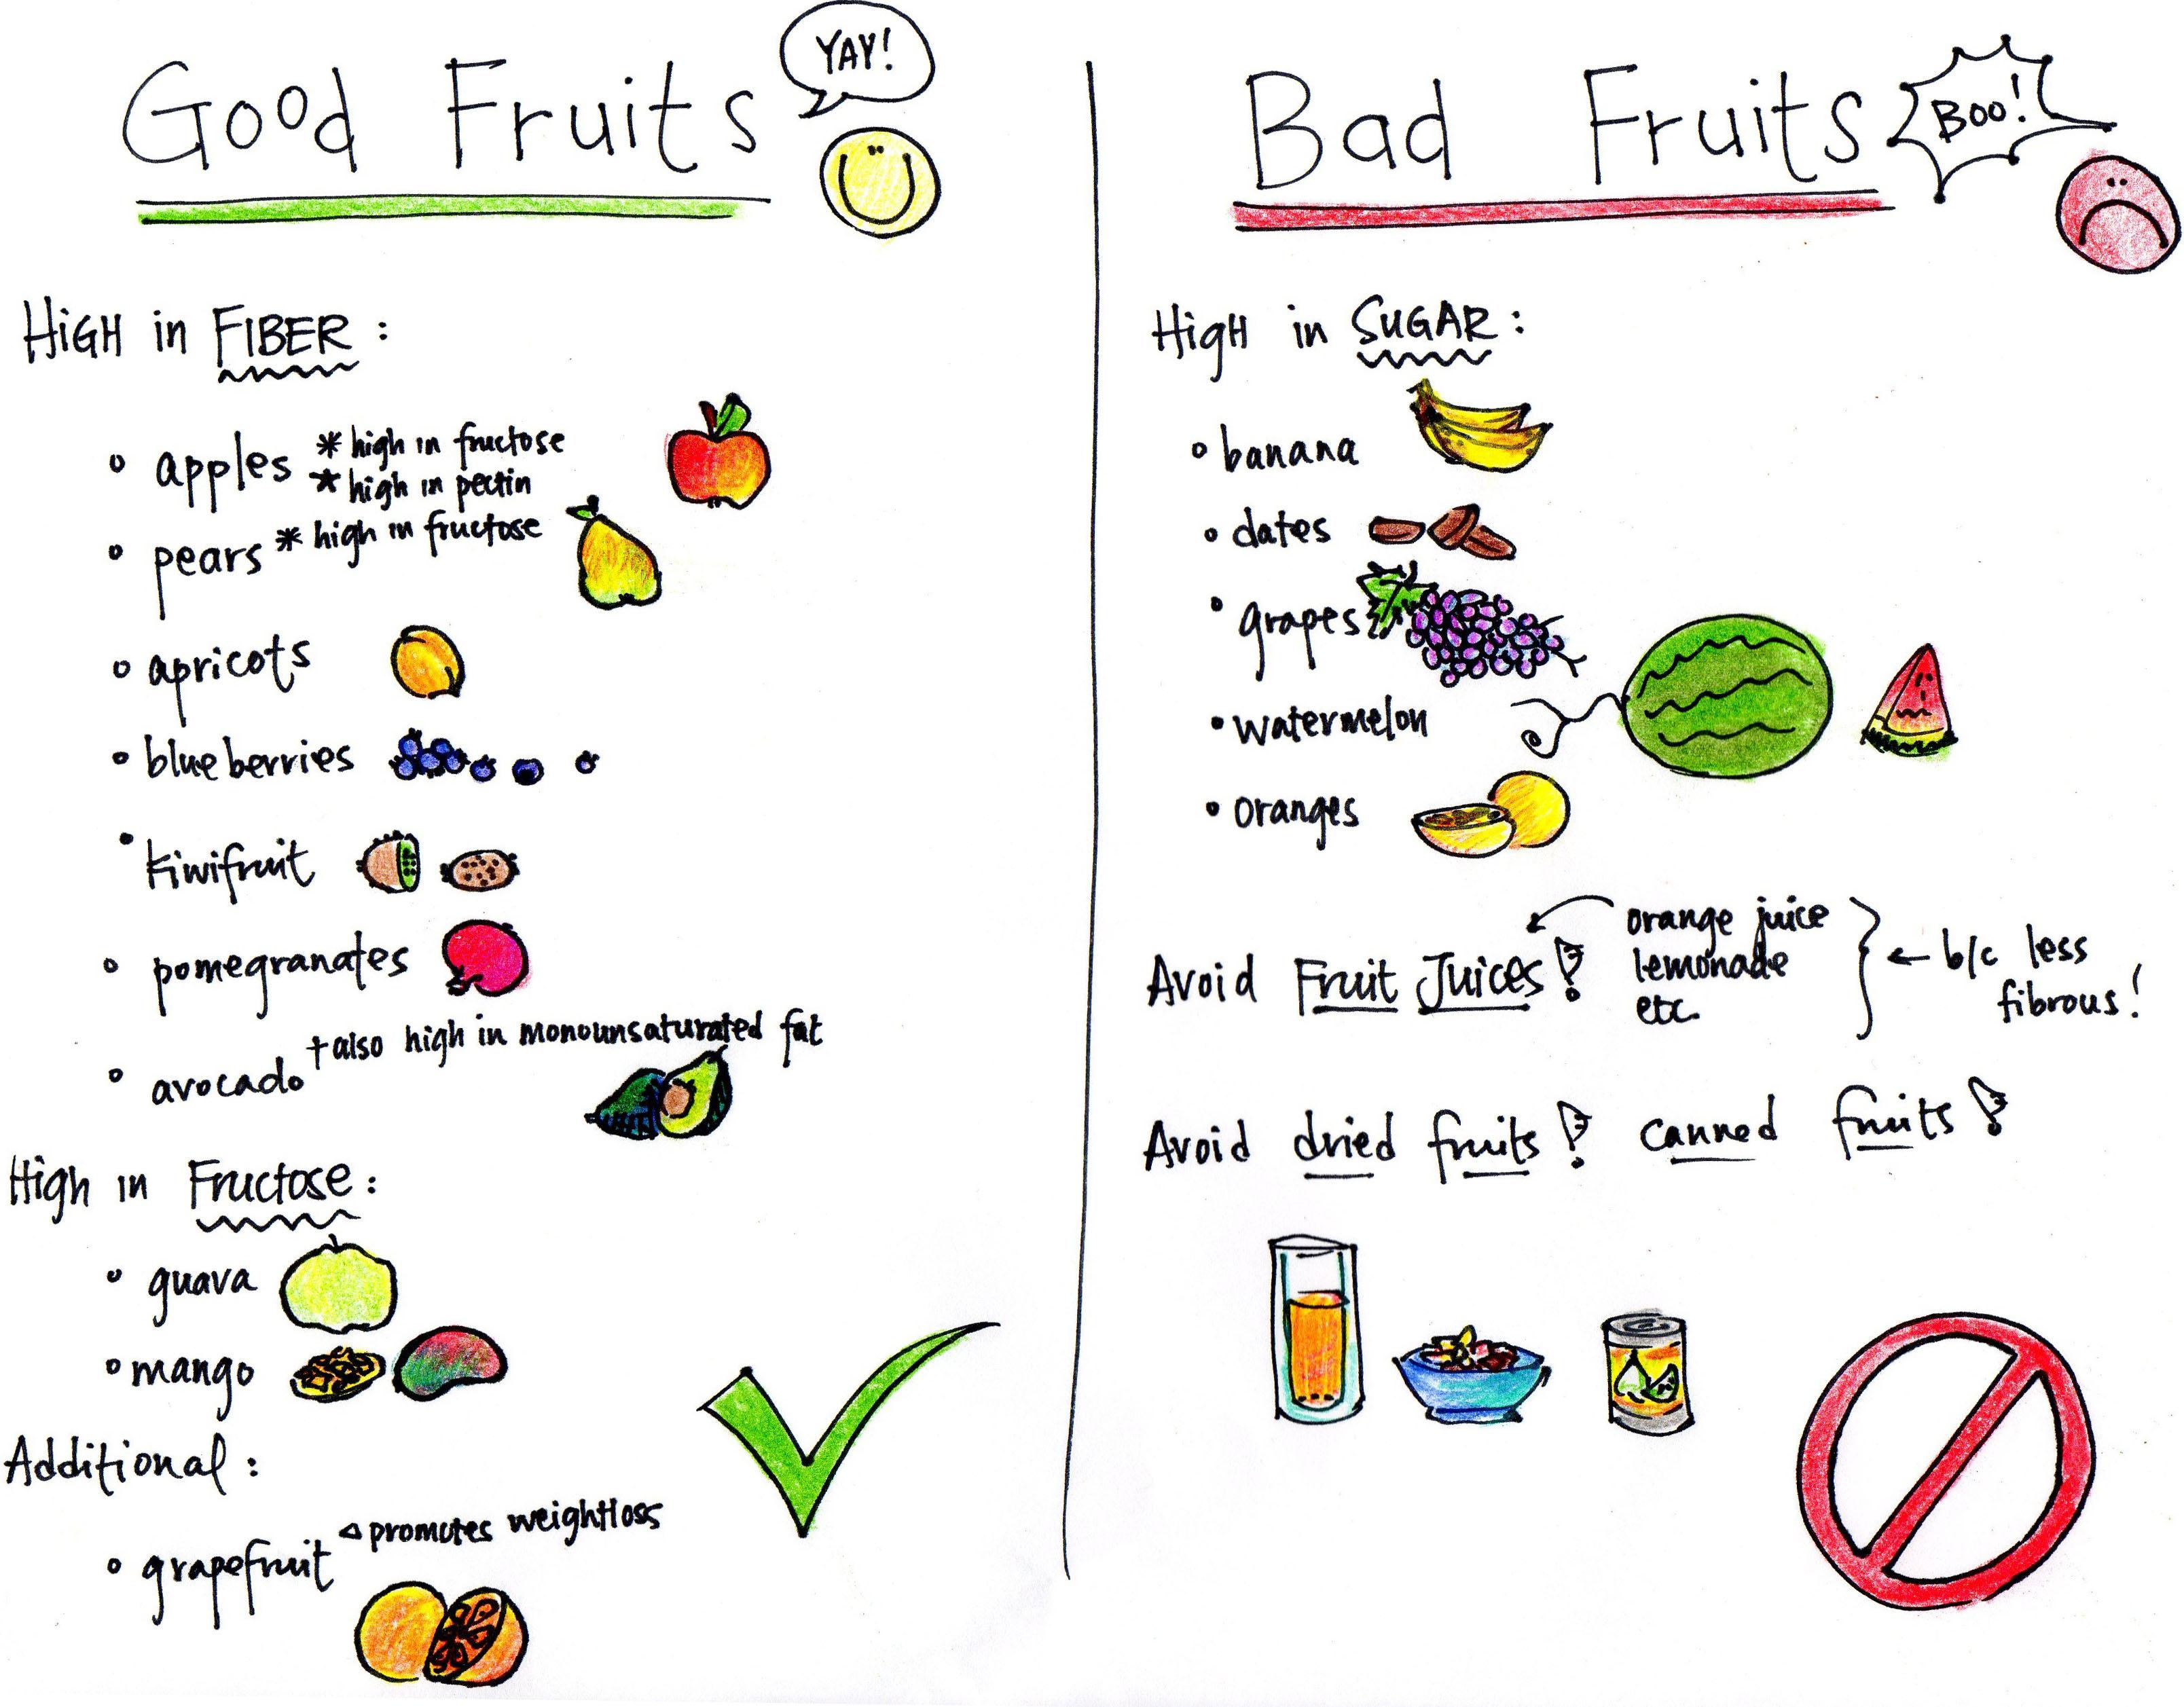 Good Fruits
YAY!
HIGH in FIBER :
apples * high in fructose
* high in pectin
pears * high in fructose
apricots
blueberries
kiwifruit
pomegranates
avocado † also high in monounsaturated fat
High in Fructose :
guava
mango
Additional :
grapefruit △ promotes weightloss
Bad Fruits
BOO!
High in SUGAR :
banana
dates
grapes
watermelon
oranges
Avoid Fruit Juices! ← orange juice
lemonade
etc.
← b/c less
fibrous!
Avoid dried fruits! canned fruits!